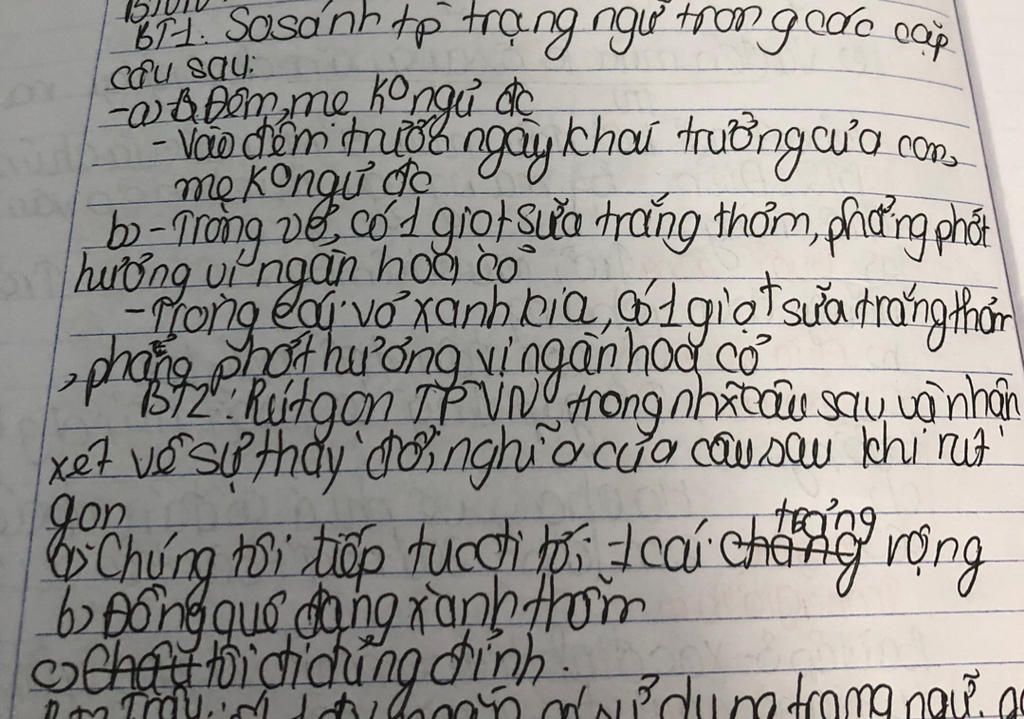 BT1: So sánh tp trạng ngữ trong các cặp
câu sau:
-a) Đêm, mẹ ko ngủ đc
- Vào đêm trước ngày khai trường của con,
mẹ ko ngủ đc
b) - Trong vỏ, có 1 giọt sữa trắng thơm, phảng phất
hương vị ngàn hoa cỏ
- Trong cái vỏ xanh kia, có 1 giọt sữa trắng thơm
, phảng phất hương vị ngàn hoa cỏ
BT2: Rút gọn TP VN trong nh~ câu sau và nhận
xét về sự thay đổi nghĩa của câu sau khi rút
gọn
trảng
a) Chúng tôi tiếp tục đi tới 1 cái rộng
b) Đồng quê đang xanh thơm
c) tôi đi đủng đỉnh.
trạng ngữ